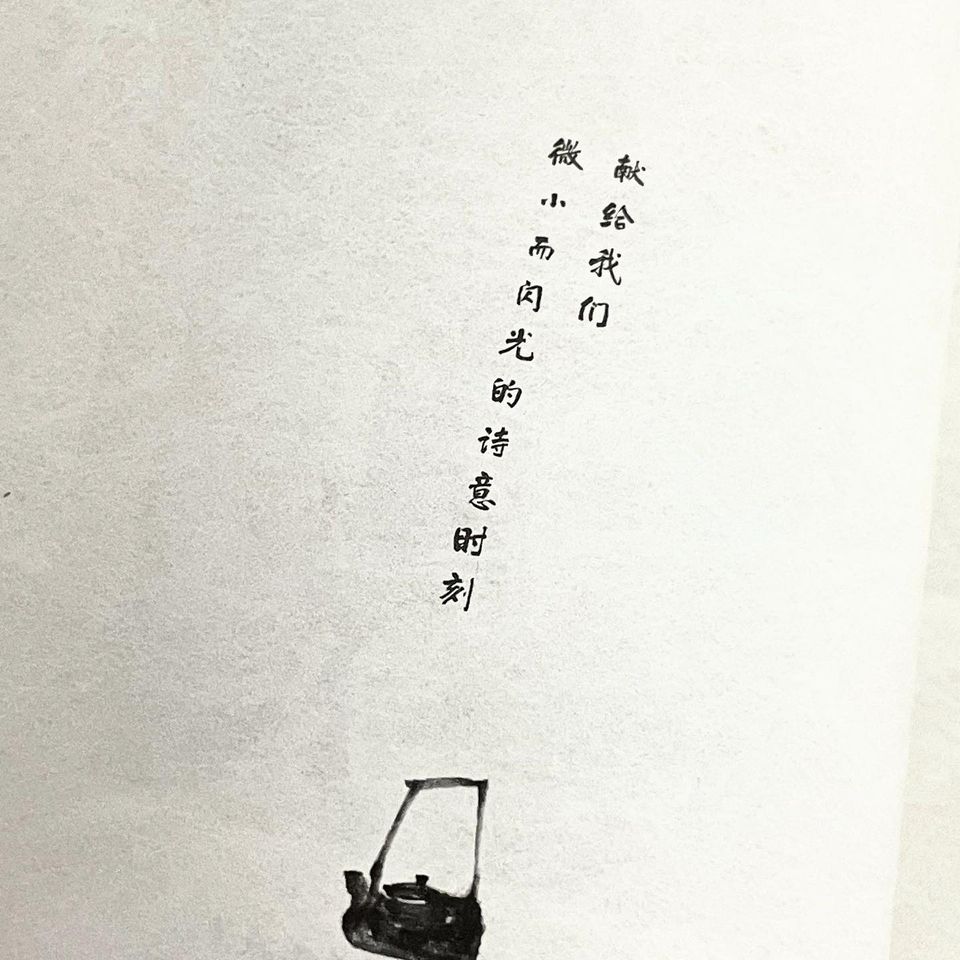 献给我们
微小而闪光的诗意时刻